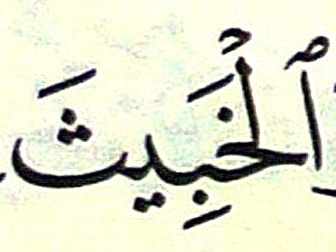 ٱلْخَبِيثَ